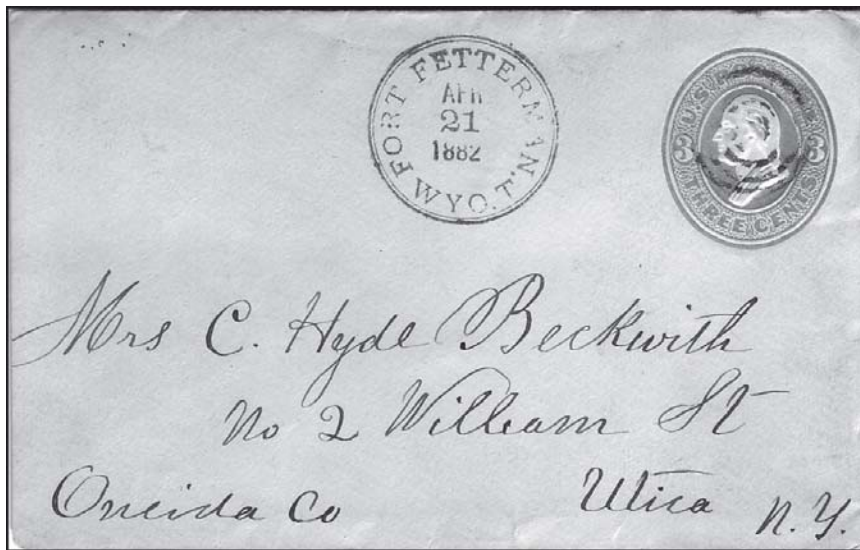 FORT FETTERMAN
APR
21
1882
WYO. T'N.
U.S. POSTAGE
3 3
THREE CENTS
Mrs C. Hyde Beckwith
No 2 William St
Oneida Co Utica N.Y.